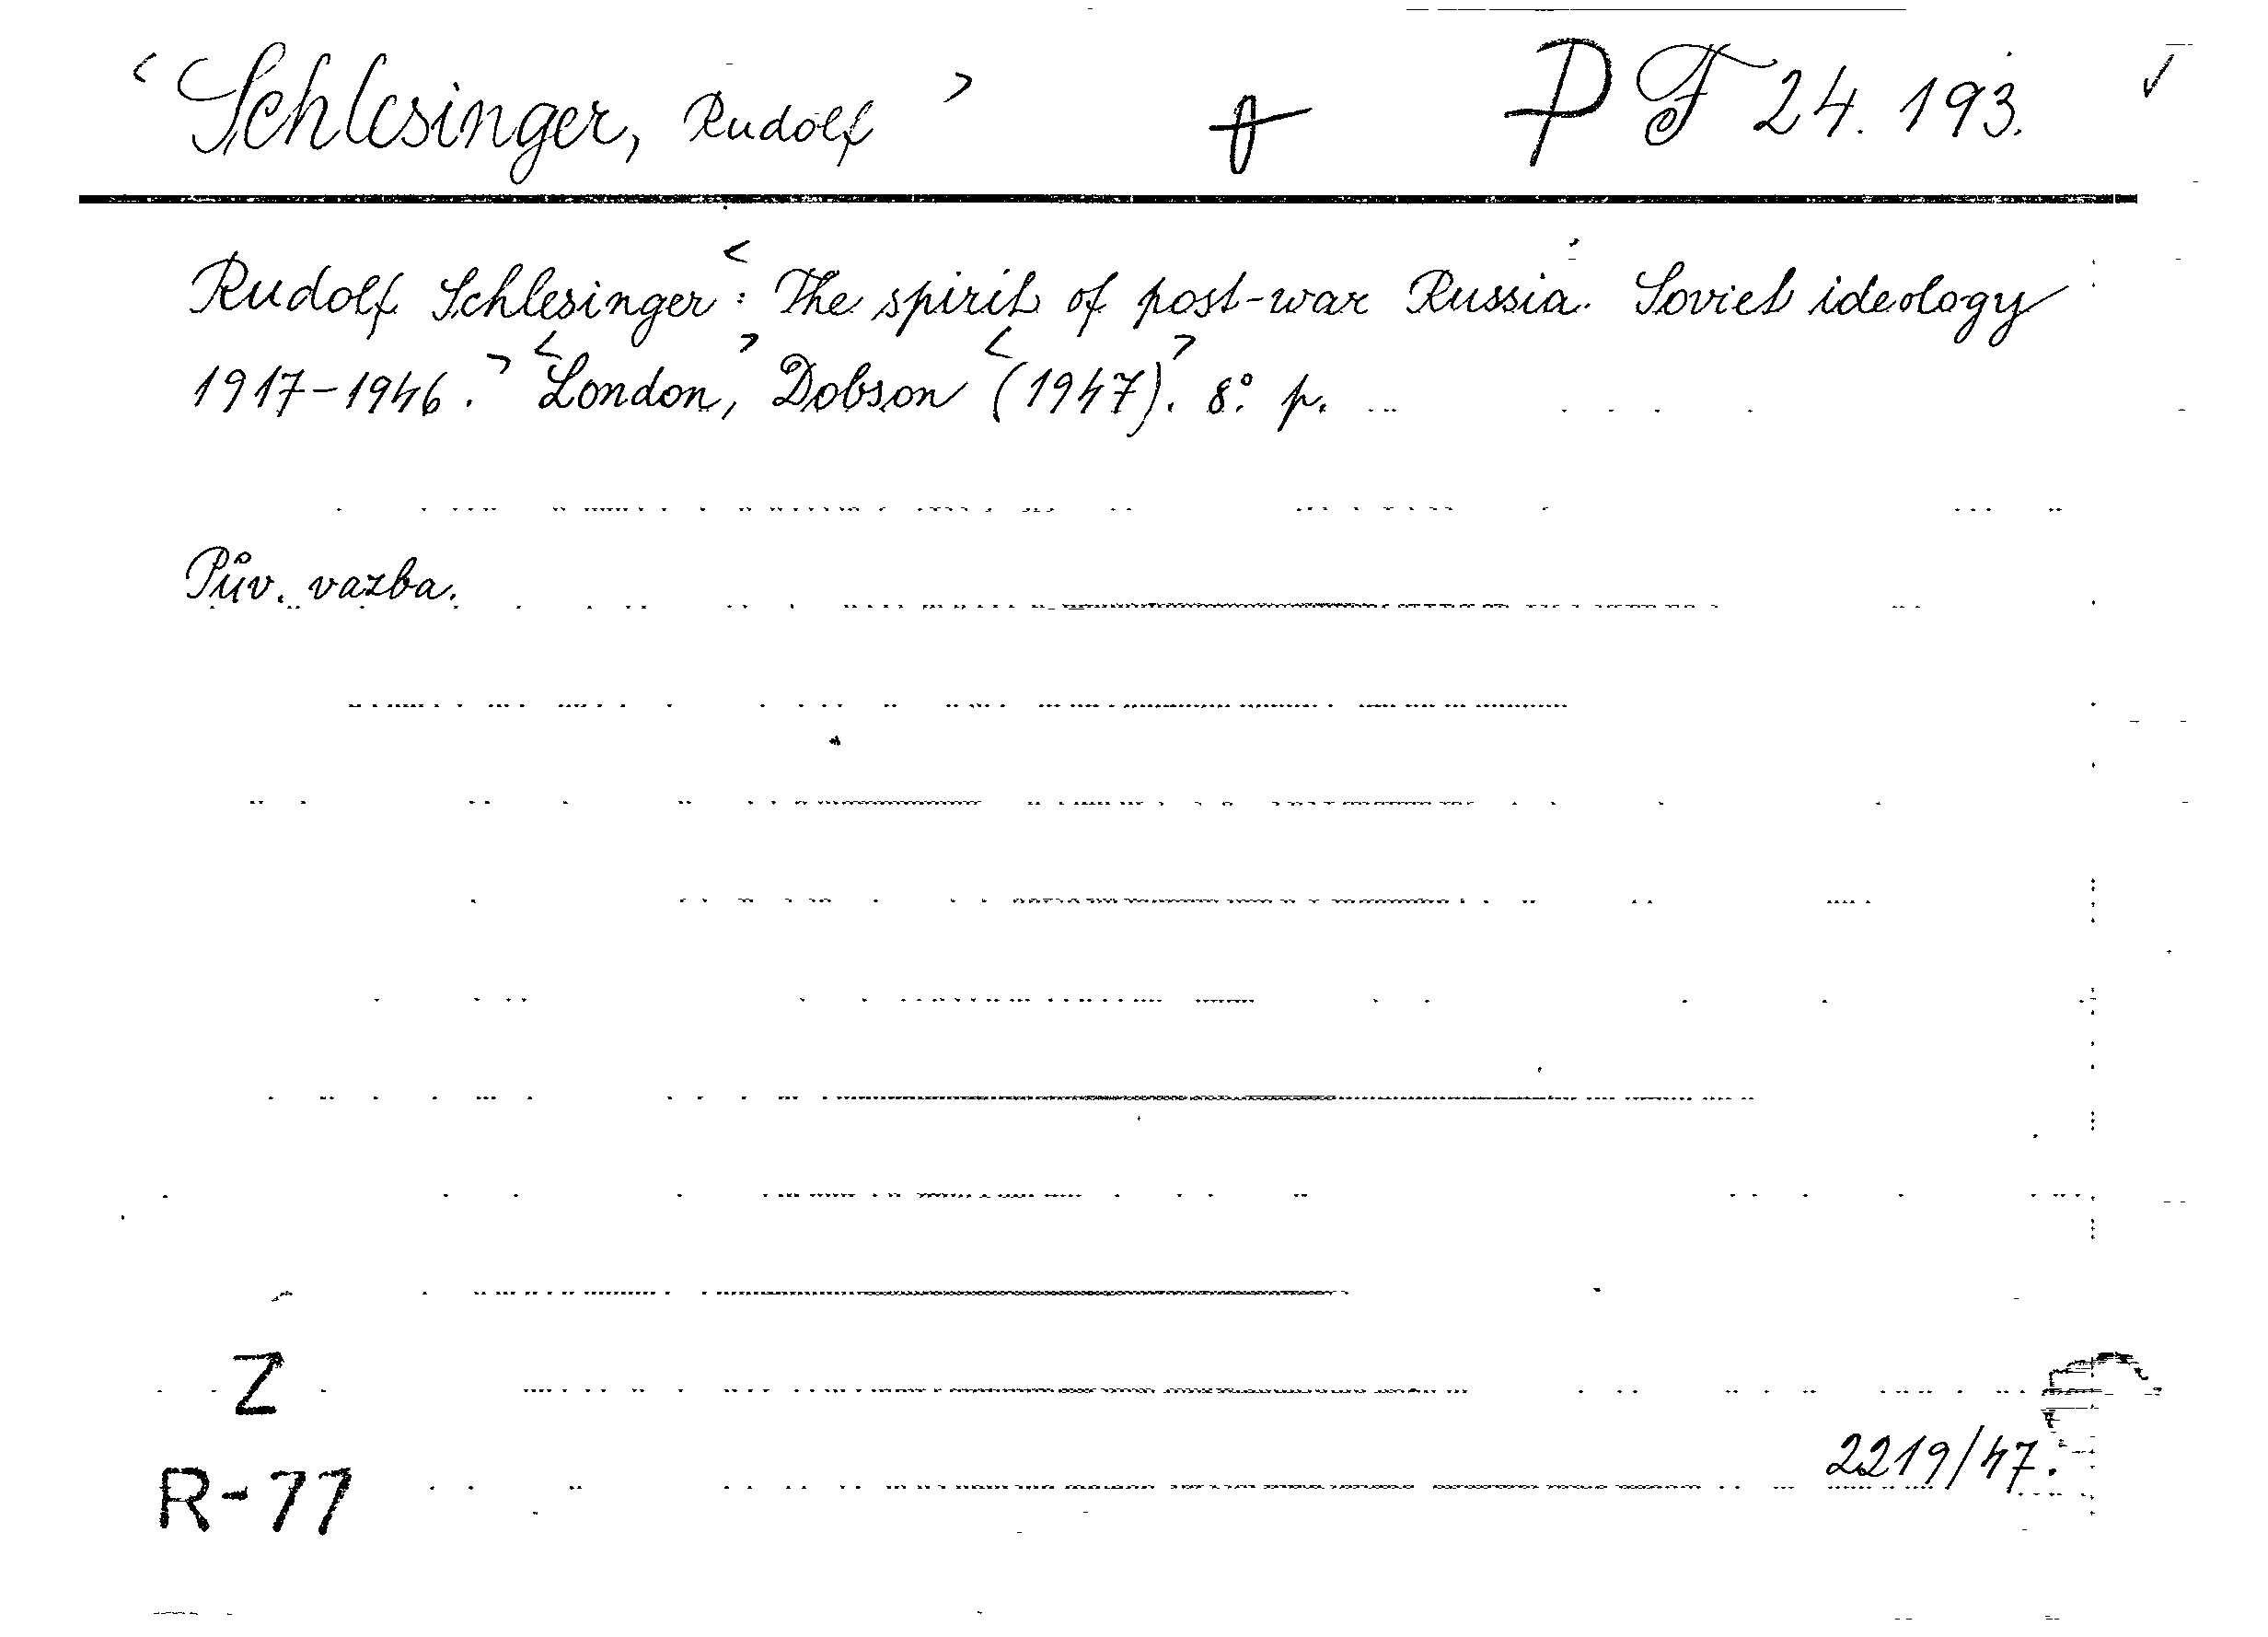 < Schlesinger, Rudolf > P F 24.193. ✓
Rudolf Schlesinger: < The spirit of post-war Russia. Soviet ideology
1917-1946. > < London, > Dobson < (1947). > 8° p.
Pův. vazba.
Z
2219/47.
R-77